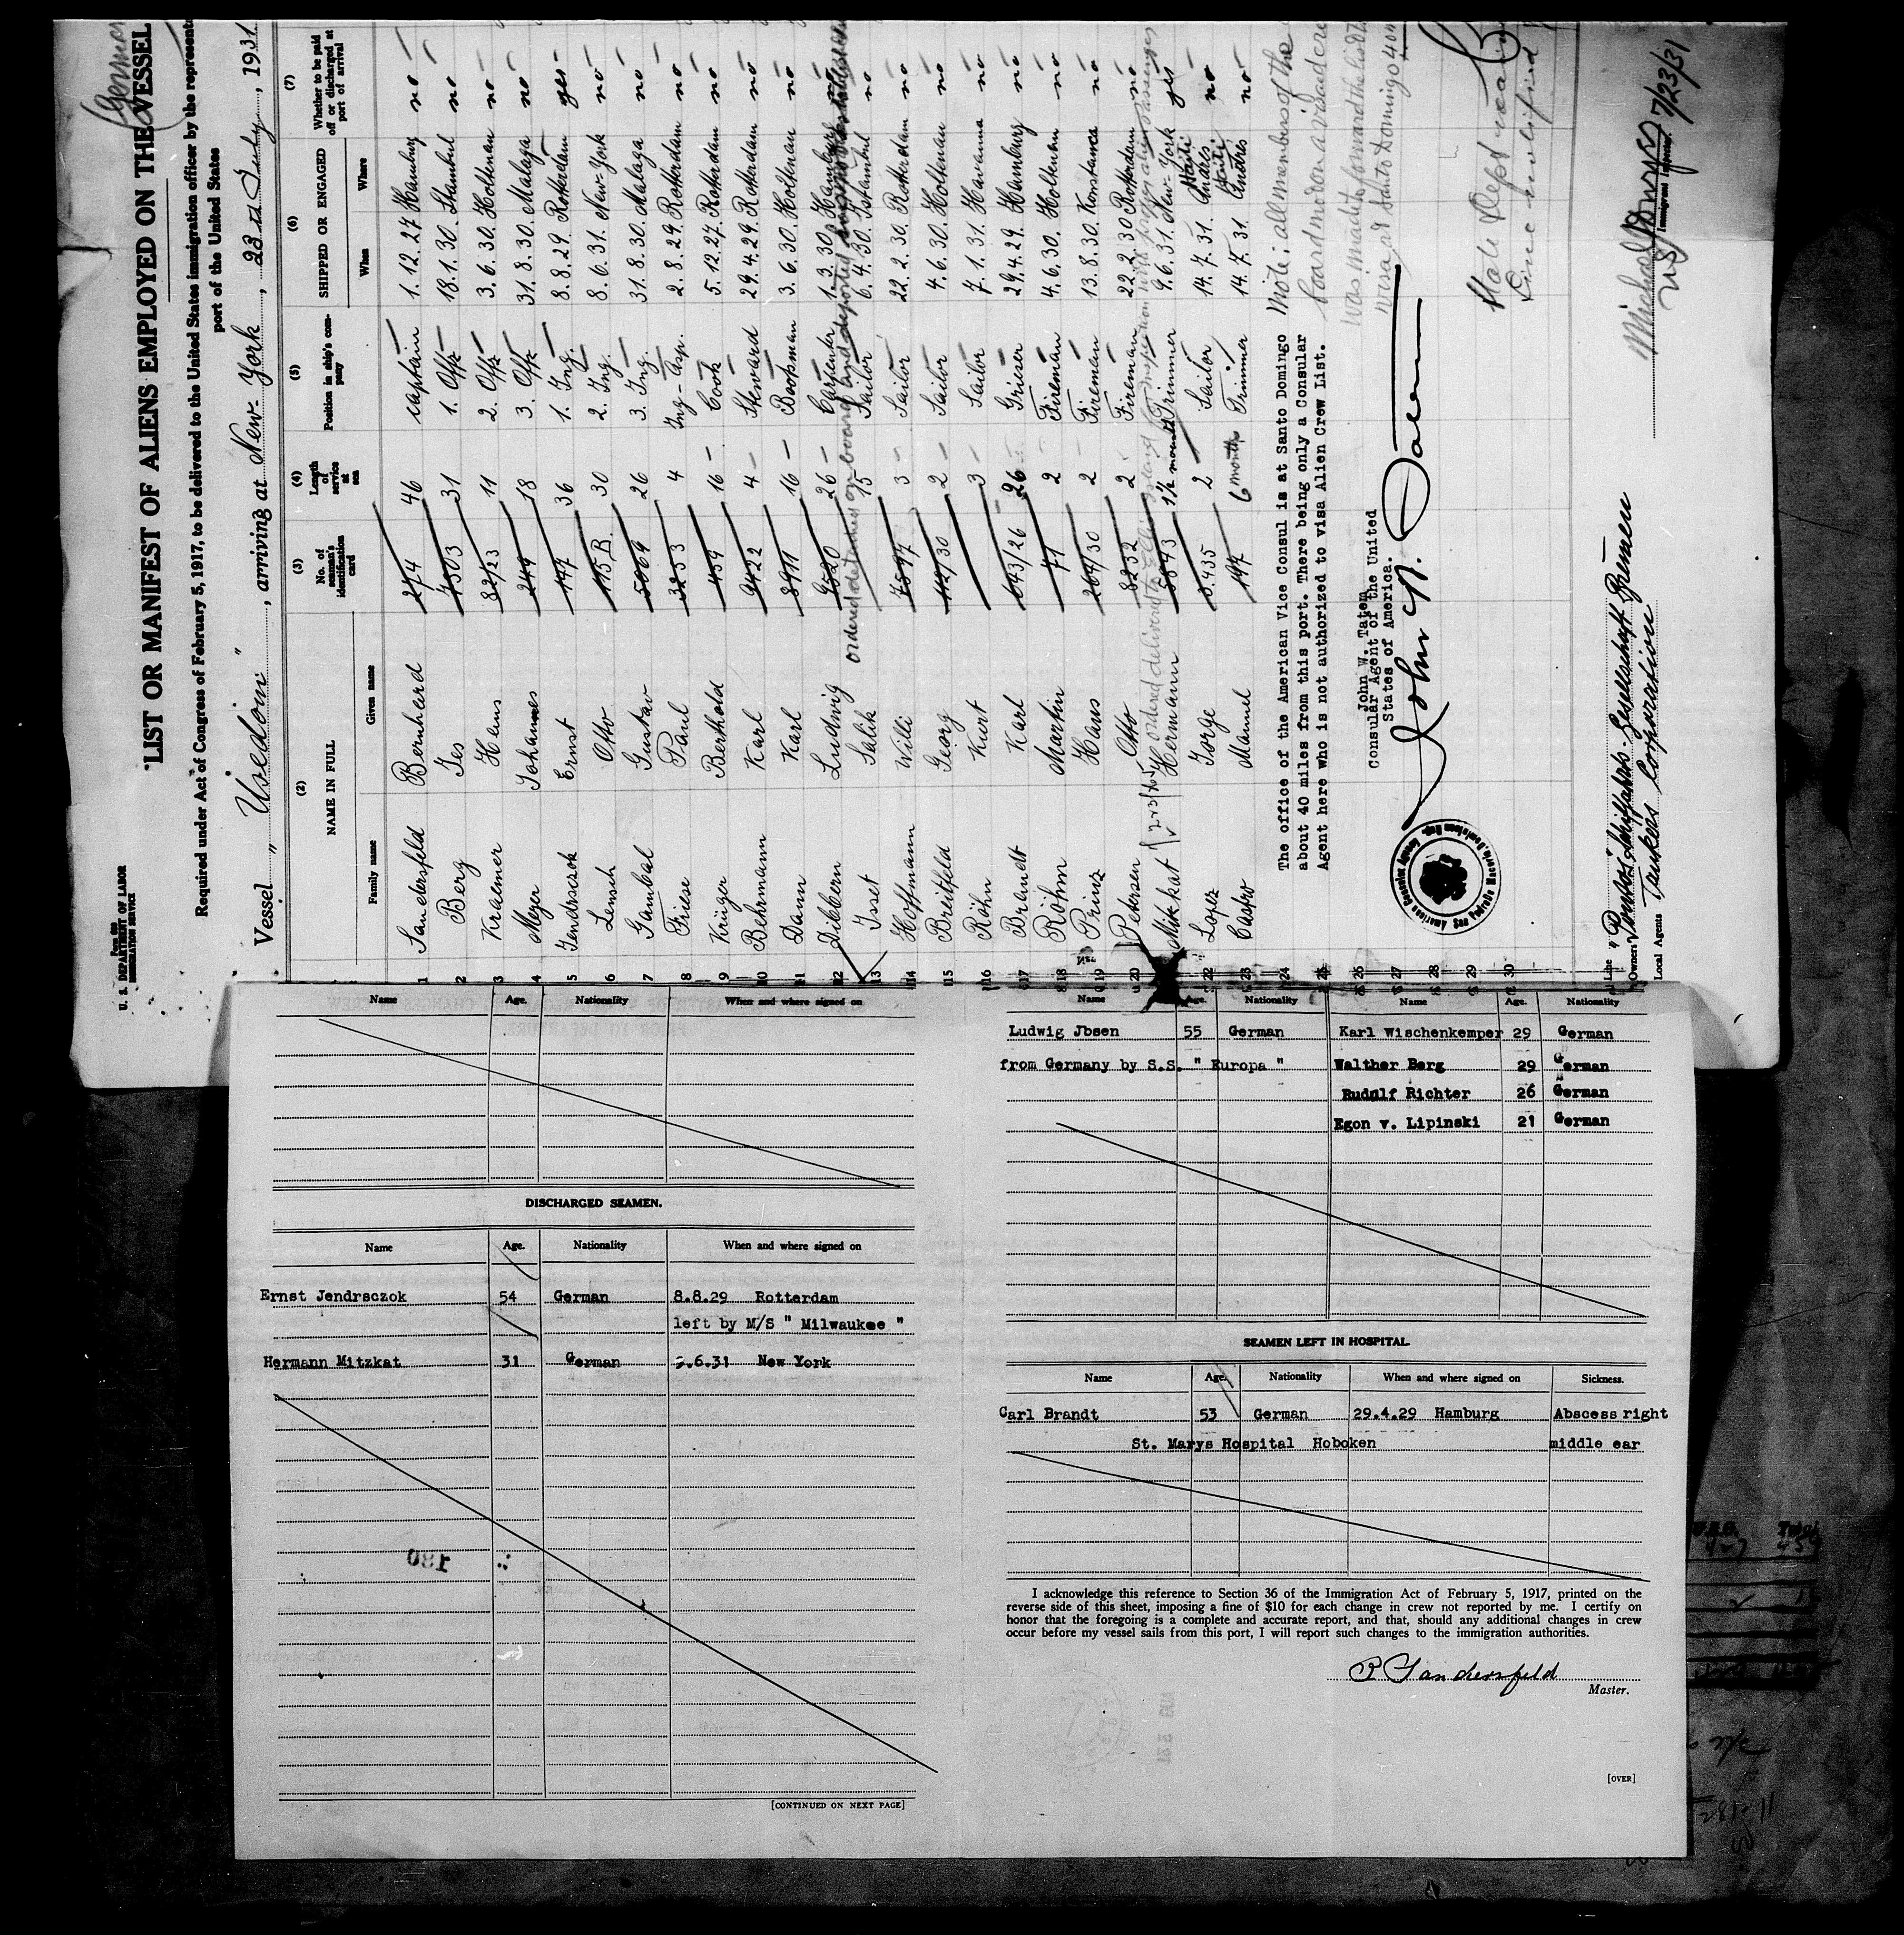 Form 680
U. S. DEPARTMENT OF LABOR
IMMIGRATION SERVICE
LIST OR MANIFEST OF ALIENS EMPLOYED ON THE VESSEL
German
Required under Act of Congress of February 5, 1917, to be delivered to the United States immigration officer by the represent
port of the United States
Vessel " Usedom ", arriving at New-York, 23rd July, 1931
(2) (3) (4) (5) (6) (7)
NAME IN FULL No. of seaman's identification card Length of service at sea Position in ship's company SHIPPED OR ENGAGED Whether to be paid off or discharged at port of arrival
Family name Given name When Where
1 Sandersfeld Bernhard 274 46 captain 1.12.27 Hamburg no
2 Berg Jes 4503 31 1. Offz 18.1.30. Stambul no
3 Kraemer Hans 82/23 11 2. Offz 3.6.30. Holtenau no
4 Meyer Johannes 249 18 3. Offz 31.8.30. Malaga no
5 Jendrsczok Ernst 147 36 1. Ing. 8.8.29. Rotterdam yes
6 Lensch Otto 115.B. 30 2. Ing. 8.6.31. New-York no
7 Gambal Gustav 5069 26 3. Ing. 31.8.30. Malaga no
8 Friese Paul 3253 4 Ing-Asp. 2.8.29. Rotterdam no
9 Krüger Berthold 459 16 Cook 5.12.27. Rotterdam no
10 Behrmann Karl 9422 4 Steward 29.4.29. Rotterdam no
11 Dann Karl 8911 16 Bootsman 3.6.30. Holtenau no
12 Dibbern Ludwig 9520 26 Carpenter 1.3.30 Hamburg no
ordered detained on board and deported
13 Isset Salik 15 Sailor 6.4.30. Istambul no
14 Hoffmann Willi 7597 3 Sailor 22.2.30. Rotterdam no
15 Breitfeld Georg 112/30 2 Sailor 4.6.30. Holtenau no
16 Röhn Kurt 3 Sailor 7.1.31. Havanna no
17 Brandt Karl 643/26 26 Grieser 29.4.29. Hamburg no
18 Röhm Martin 71 2 Fireman 4.6.30. Holtenau no
19 Prinz Hans 264/30 2 Fireman 13.8.30. Konstanca no
20 Petersen Otto 8232 2 Fireman 22.2.30 Rotterdam no
ordered delivered to Ellis Island for inspection
Mitzkat Hermann 5893 1½ months Trimmer 9.6.31. New-York yes
22 Lopez Jorge 3.435 2 Sailor 14.7.31. Andres no
23 Castro Manuel 197 6 months Trimmer 14.7.31. Andres no
24
25
26
27
28
29
30
The office of the American Vice Consul is at Santo Domingo
about 40 miles from this port. There being only a Consular
Agent here who is not authorized to visa Alien Crew List.
John W. Tatem
Consular Agent of the United
States of America.
John W. Tatem
American Consular Agency San Pedro de Macoris, Dominican Rep.
Note: all members of the
board
was
visa at Santo Domingo 40 m
State Dept
Fine notified
Line
Owners
Local Agents Tankers Corporation
Michael
Immigrant Inspector
7/23/31
Name Age. Nationality When and where signed on
DISCHARGED SEAMEN.
Name Age. Nationality When and where signed on
Ernst Jendrsczok 54 German 8.8.29 Rotterdam
left by M/S " Milwaukee "
Hermann Mitzkat 31 German 9.6.31 New York
180
[CONTINUED ON NEXT PAGE]
Name Age. Nationality Name Age. Nationality
Ludwig Jbsen 55 German Karl Wischenkemper 29 German
from Germany by S.S. " Europa " Walther Berg 29 German
Rudolf Richter 26 German
Egon v. Lipinski 21 German
SEAMEN LEFT IN HOSPITAL.
Name Age. Nationality When and where signed on Sickness.
Carl Brandt 53 German 29.4.29 Hamburg Abscess right
St. Marys Hospital Hoboken middle ear
I acknowledge this reference to Section 36 of the Immigration Act of February 5, 1917, printed on the
reverse side of this sheet, imposing a fine of $10 for each change in crew not reported by me. I certify on
honor that the foregoing is a complete and accurate report, and that, should any additional changes in crew
occur before my vessel sails from this port, I will report such changes to the immigration authorities.
B Sandersfeld
Master.
[OVER]